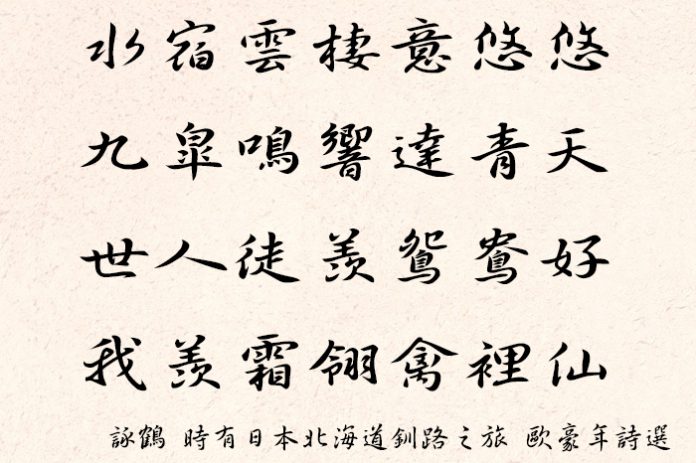 水宿雲棲意悠悠
九皐鳴響達青天
世人徒羨鴛鴦好
我羨霜翎禽裡仙
詠鶴 時有日本北海道釧路之旅 歐豪年詩選